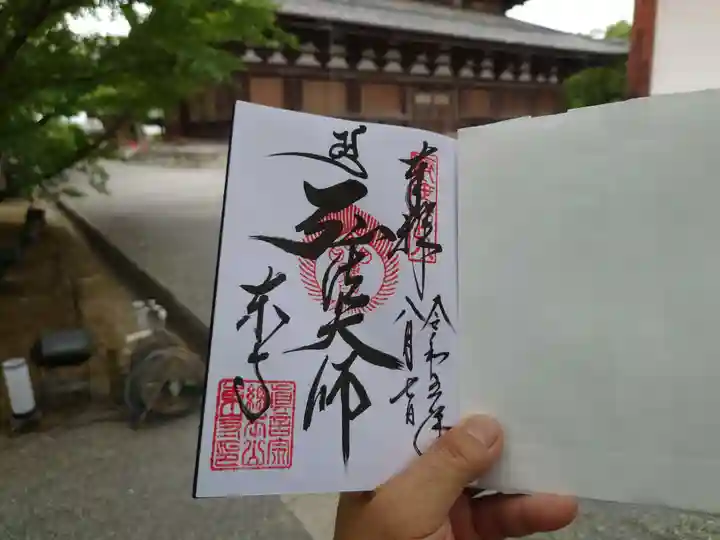 奉拝
令和五年
八月七日
弘法大師
東寺
真言宗
総本山
東寺印